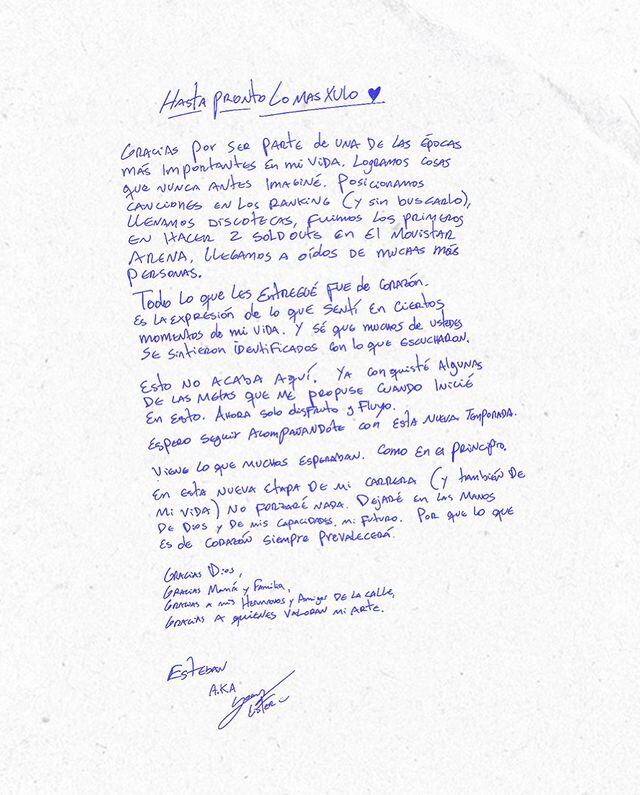 HASTA PRONTO LO MAS XULO ♥
GRACIAS POR SER PARTE DE UNA DE LAS ÉPOCAS
MÁS IMPORTANTES EN MI VIDA. LOGRAMOS COSAS
QUE NUNCA ANTES IMAGINÉ. POSICIONAMOS
CANCIONES EN LOS RANKING (Y SIN BUSCARLO),
LLENAMOS DISCOTECAS, FUIMOS LOS PRIMEROS
EN HACER 2 SOLD OUTS EN EL MOVISTAR
ARENA, LLEGAMOS A OÍDOS DE MUCHAS MÁS
PERSONAS.
TODO LO QUE LES ENTREGUÉ FUE DE CORAZÓN.
ES LA EXPRESIÓN DE LO QUE SENTÍ EN CIERTOS
MOMENTOS DE MI VIDA. Y SÉ QUE MUCHOS DE USTEDES
SE SINTIERON IDENTIFICADOS CON LO QUE ESCUCHARON.
ESTO NO ACABA AQUÍ. YA CONQUISTÉ ALGUNAS
DE LAS METAS QUE ME PROPUSE CUANDO INICIÉ
EN ESTO. AHORA SOLO DISFRUTO Y FLUYO.
ESPERO SEGUIR ACOMPAÑANDOTE CON ESTA NUEVA TEMPORADA.
VIENE LO QUE MUCHOS ESPERABAN. COMO EN EL PRINCIPIO.
EN ESTA NUEVA ETAPA DE MI CARRERA (Y TAMBIÉN DE
MI VIDA) NO FORZARÉ NADA. DEJARÉ EN LAS MANOS
DE DIOS Y DE MIS CAPACIDADES, MI FUTURO. POR QUE LO QUE
ES DE CORAZÓN SIEMPRE PREVALECERÁ.
GRACIAS DIOS,
GRACIAS MAMÁ Y FAMILIA,
GRACIAS A MIS HERMANOS Y AMIGOS DE LA CALLE,
GRACIAS A QUIENES VALORAN MI ARTE.
ESTEBAN
A.K.A